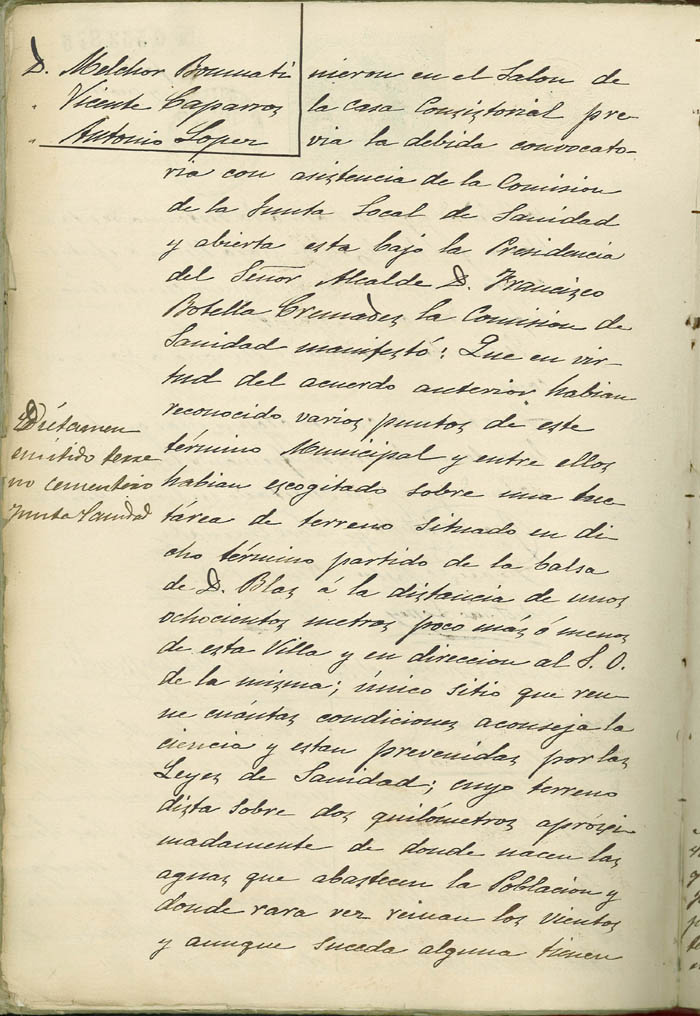 D. Melchor Bonmati
" Vicente Caparros
" Antonio Lopez
nieron en el Salon de
la casa Consistorial pre-
via la debida convocato-
ria con asistencia de la Comision
de la Junta Local de Sanidad
y abierta esta bajo la Presidencia
del Señor Alcalde D. Francisco
Botella Cremades la Comision de
Sanidad manifestó: Que en vir-
tud del acuerdo anterior habian
reconocido varios puntos de este
término Municipal y entre ellos
habian escogitado sobre una hec-
tárea de terreno situado en di-
cho término partido de la balsa
de D. Blas á la distancia de unos
ochocientos metros poco más ó menos
de esta Villa y en direccion al S. O.
de la misma; único sitio que reu-
ne cuántas condiciones aconseja la
ciencia y estan prevenidas por las
Leyes de Sanidad; cuyo terreno
dista sobre dos quilómetros apróxi-
madamente de donde nacen las
aguas que abastecen la Poblacion y
donde rara vez reinan los vientos
y aunque suceda alguna tienen
Dictamen
emitido terre
no cementerio
Junta Sanidad